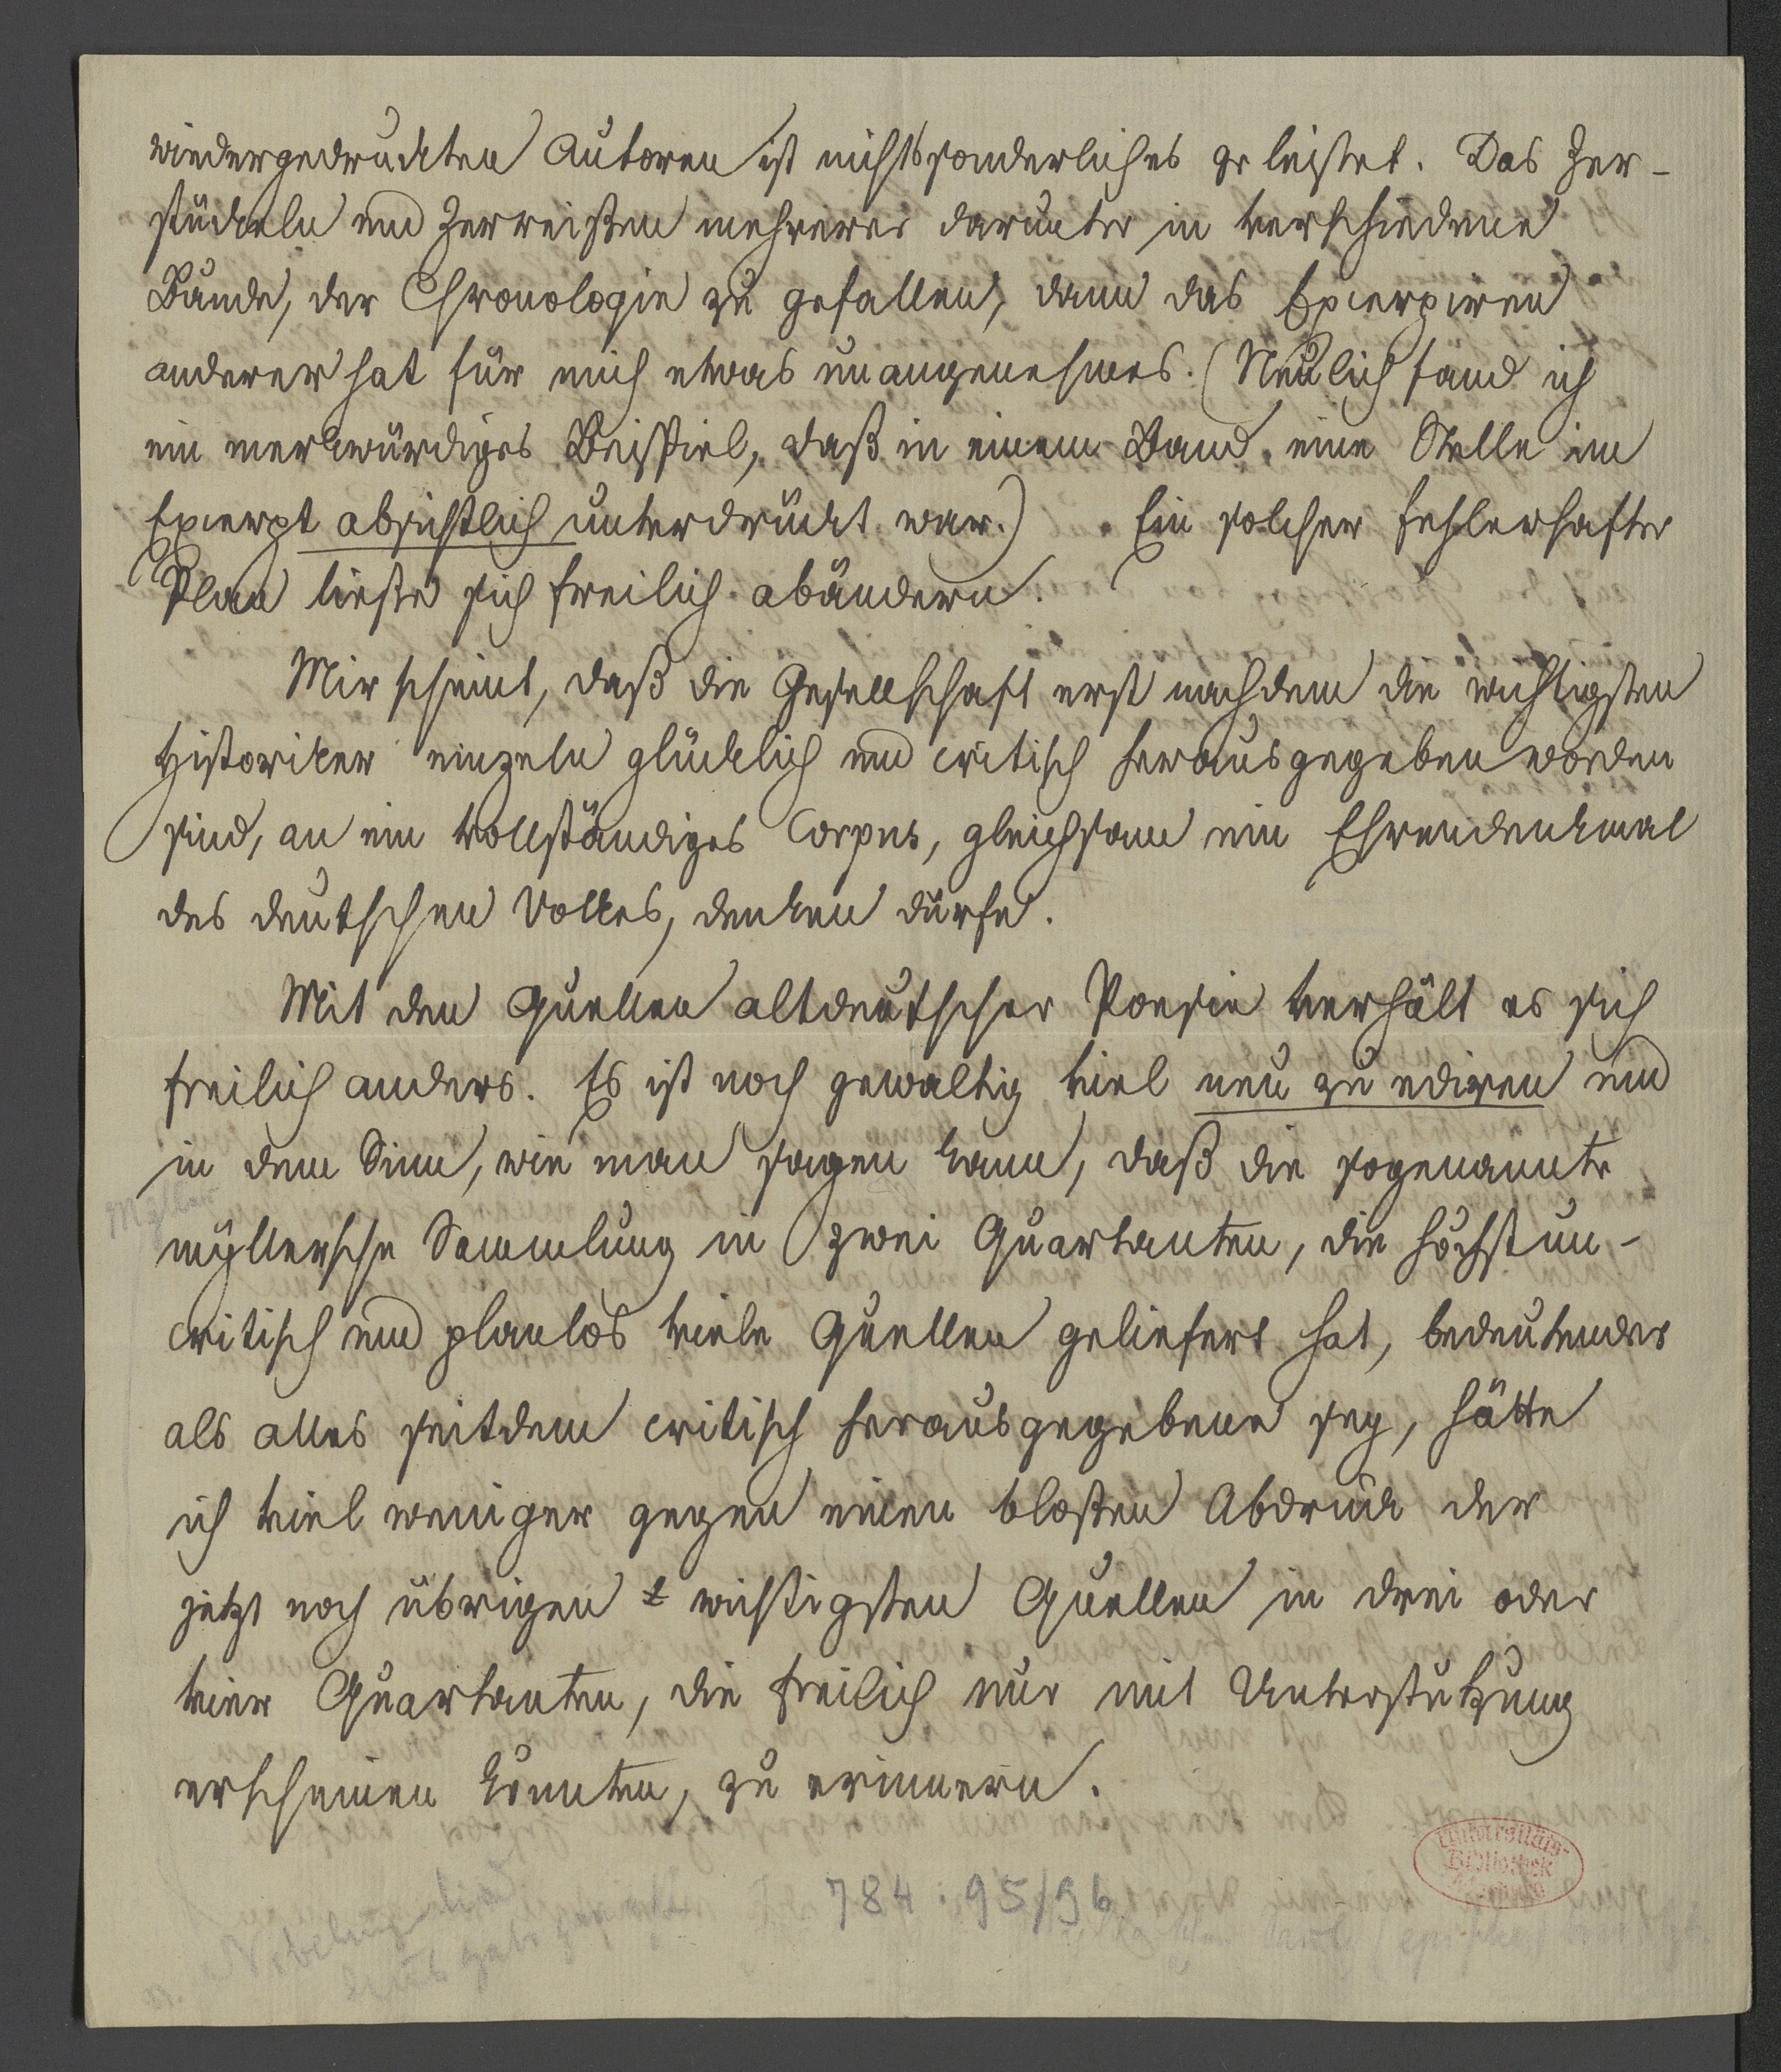 wiedergedruckten Autoren ist nichts sonderliches geleistet. Das Zer-
stückeln und Zerreißen mehrerer darunter in verschiedene
Bände, der Chronologie zu gefallen, dann das Excerpiren
anderer hat für mich etwas unangenehmes. (Neulich fand ich
ein merkwürdiges Beispiel, daß in einem Band eine Stelle im
Excerpt absichtlich unterdrückt war.) Ein solcher fehlerhafter
Plan ließe sich freilich abändern.
Mir scheint, daß die Gesellschaft erst nachdem die wichtigsten
Historiker einzeln glücklich und critisch herausgegeben worden
sind, an ein vollständiges Corpus, gleichsam ein Ehrendenkmal
des deutschen Volkes, denken dürfe.
Mit den Quellen altdeutscher Poesie verhält es sich
freilich anders. Es ist noch gewaltig viel neu zu ediren und
in dem Sinn, wie man sagen kann, daß die sogenannte
Myller
myllersche Sammlung in zwei Quartanten, die höchst un-
critisch und planlos viele Quellen geliefert hat, bedeutender
als alles seitdem critisch herausgegebene sey, hätte
ich viel weniger gegen einen bloßen Abdruck der
jetzt noch übrigen wichtigsten Quellen in drei oder
vier Quartanten, die freilich nur mit Unterstützung
erscheinen könnten, zu erinnern.
Universitäts-
Bibliothek
784:95/96